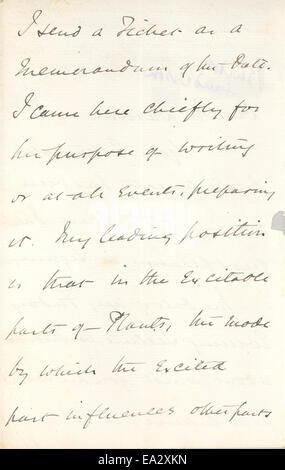 I send a Ticket as a
Memorandum of the Date.
I came here chiefly for
the purpose of writing
or at all Events, preparing
it. My leading position
is that in the Excitable
parts of Plants, the mode
by which the Excited
part influences other parts
alamy
EA2XKN